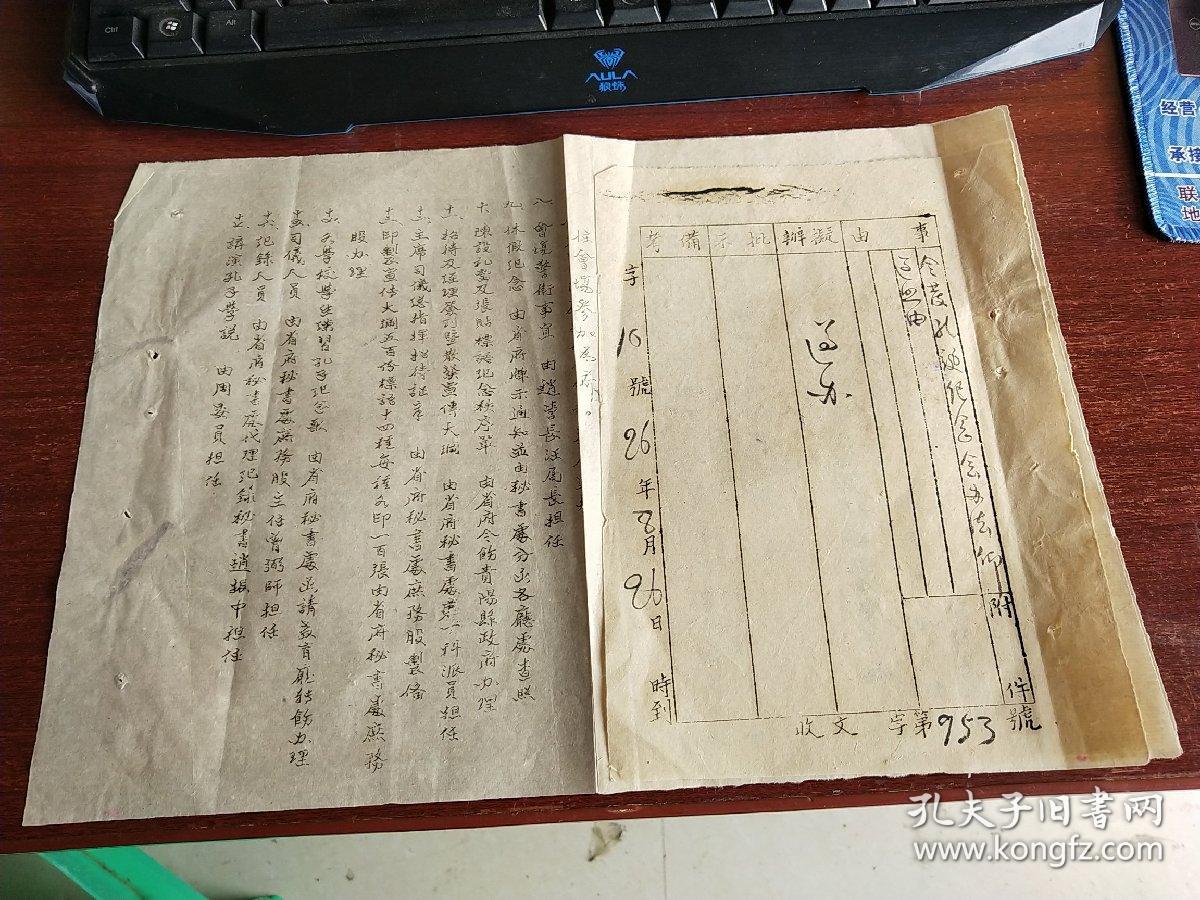 Ctrl
Alt
AULA
狼蛛
经营
承接
联
地
事
由
擬辦
批示
備考
令發孔誕紀念會辦法仰
遵照由
附
件
遵办
字10號26年8月26日
時到
收文
字第953號
往會場參加為荷。
八、會場警衛事宜 由趙
長担任
九、休假紀念 由省府牌示通知並由秘書處分函各廳處查照
十、陳設孔堂及張貼標語紀念秩序單 由省府令飭貴陽縣政府办理
十一、招待及經理簽到暨散發宣傳大綱 由省府秘書處第一科派員担任
十二、主席司儀總指揮招待証章 由省府秘書處庶務股製備
十三、印製宣傳大綱五百份標語十四種每種各印一百張由省府秘書處庶務
股办理
十四、各學校學生練習孔子紀念歌 由省府秘書處函請教育廳轉飭办理
十五、司儀人員 由省府秘書處庶務股主任曾弼師担任
十六、紀錄人員 由省府秘書處代理紀錄秘書趙振中担任
十七、講演孔子學說 由周委員担任
孔夫子旧书网
www.kongfz.com